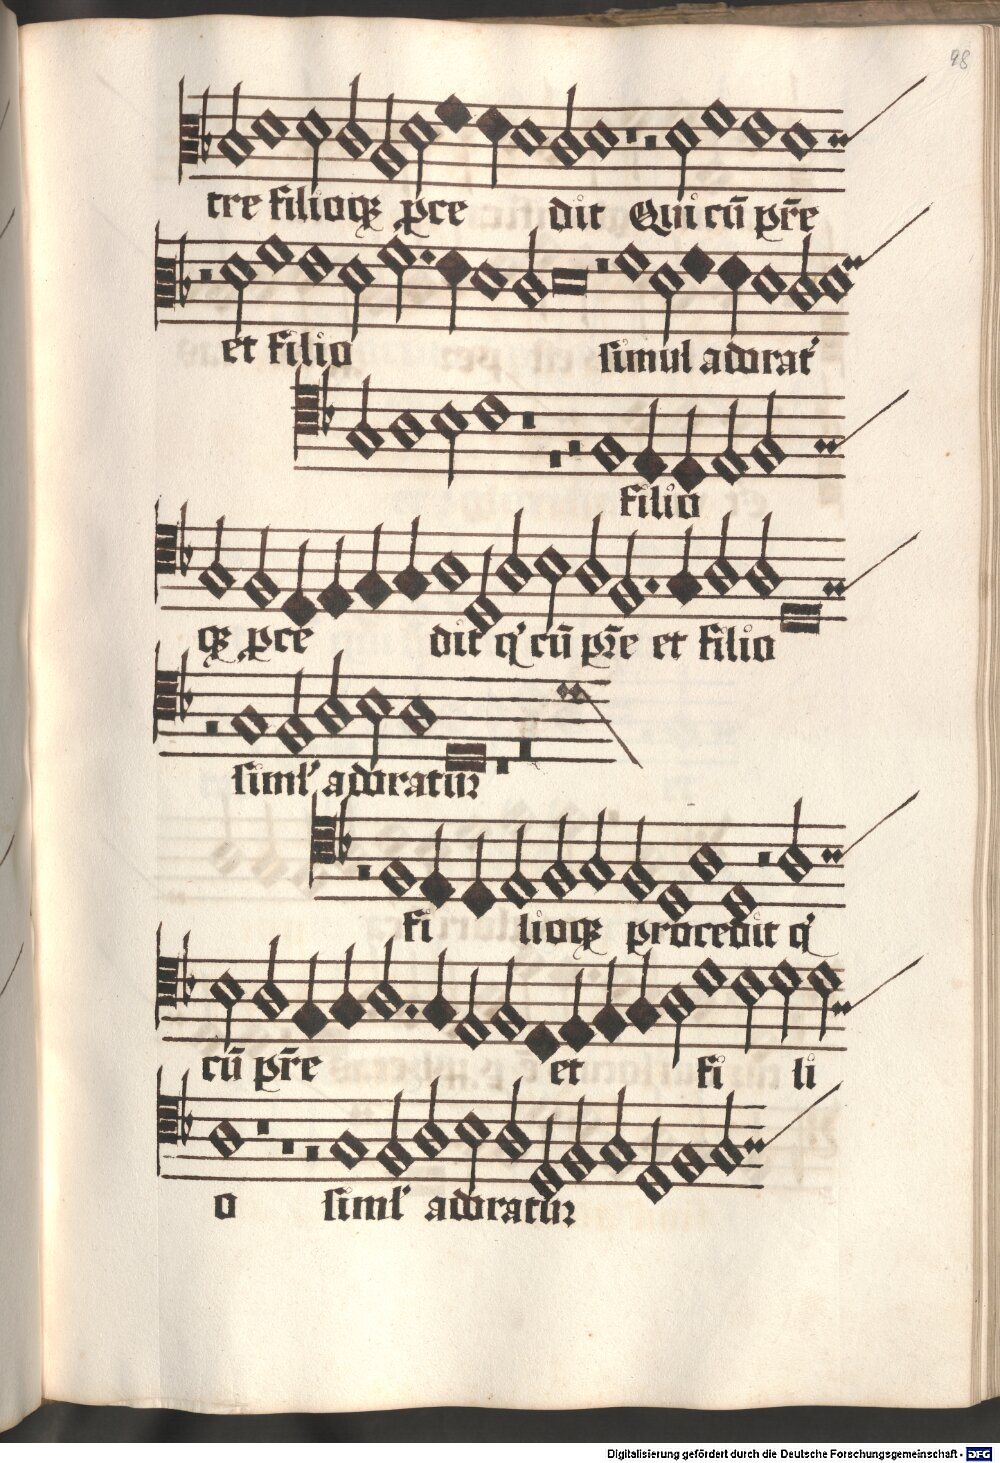 98
tre filioqꝫ ꝓce dit Qui cū pr̄e
et filio simul adorat᷑
filio
qꝫ ꝓce dit q' cū pr̄e et filio
siml' adoratur
fi lioqꝫ procedit q'
cū pr̄e et fi li
o siml' adoratur
Digitalisierung gefördert durch die Deutsche Forschungsgemeinschaft - DFG